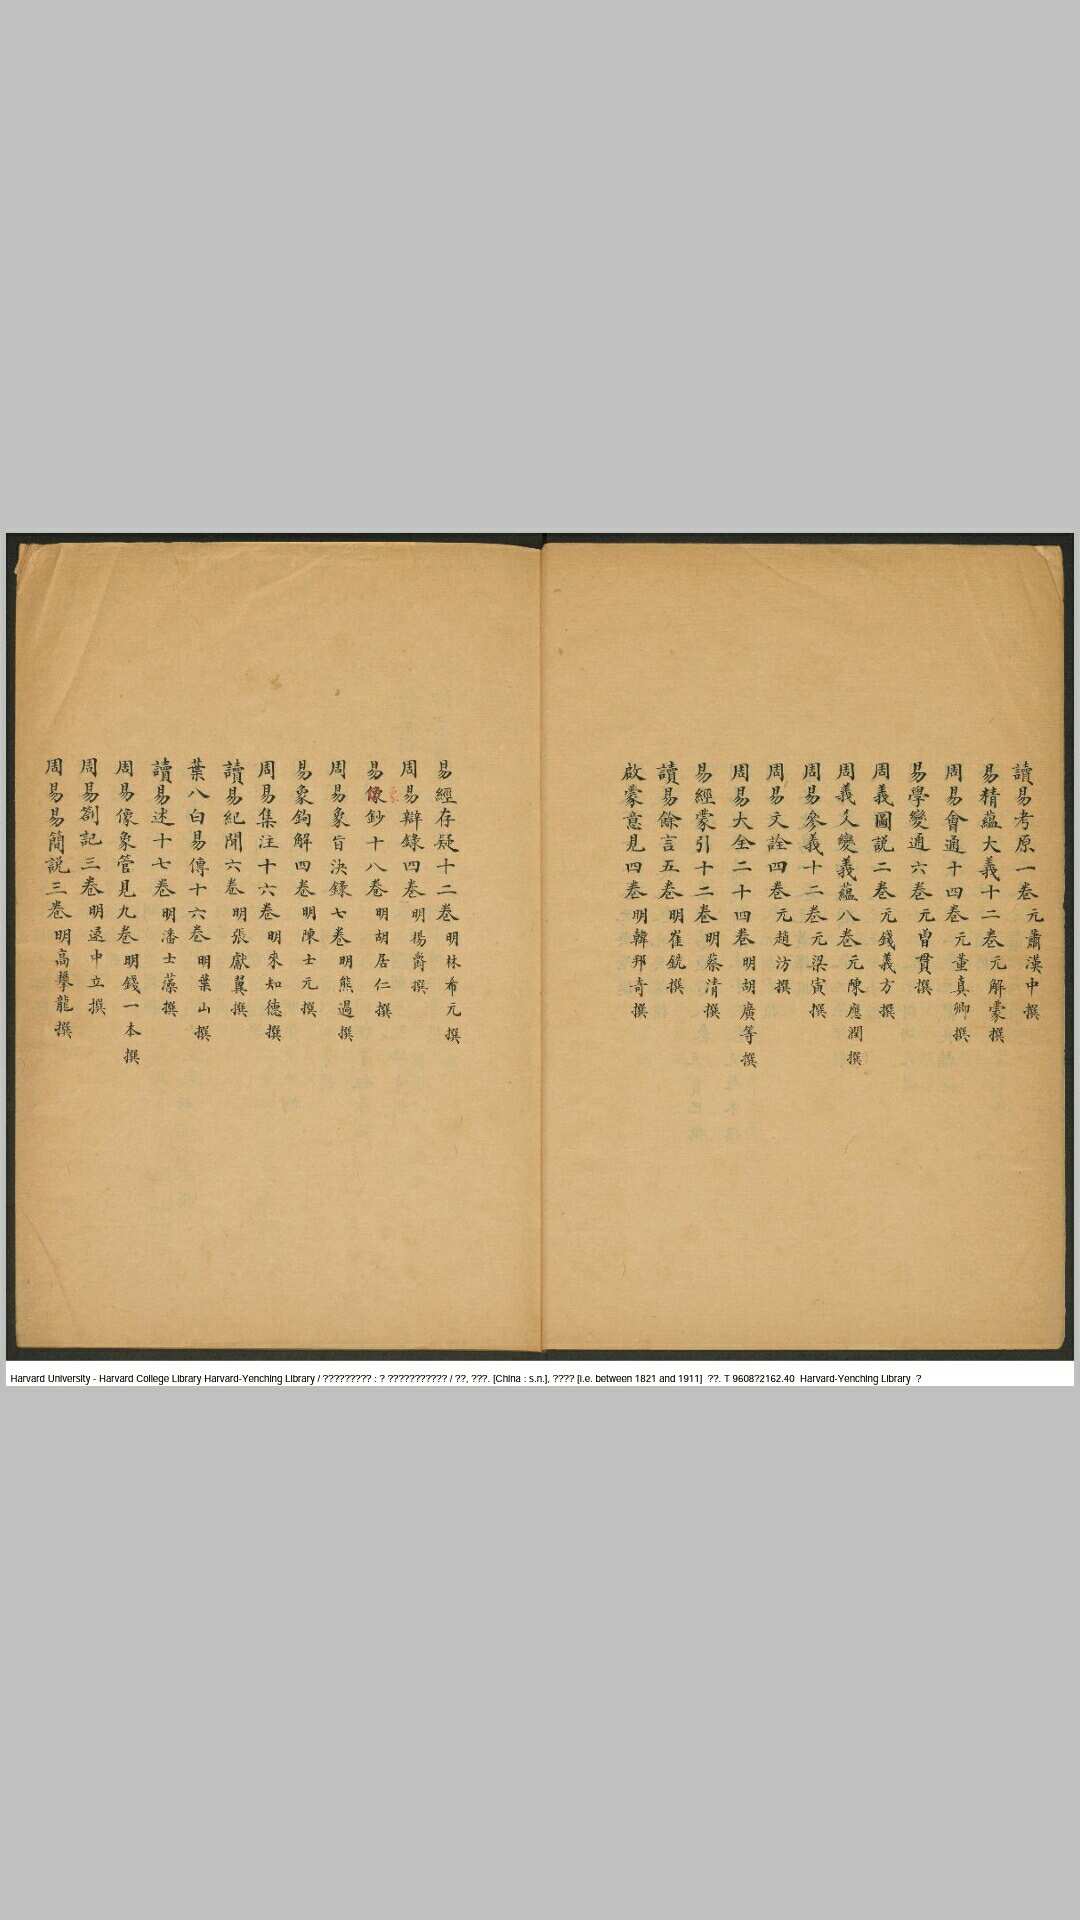 讀易考原一卷元蕭漢中撰
易精蘊大義十二卷元解蒙撰
周易會通十四卷元董真卿撰
易學變通六卷元曾貫撰
周義圖説二卷元錢義方撰
周義爻變義蘊八卷元陳應潤撰
周易參義十二卷元梁寅撰
周易文詮四卷元趙汸撰
周易大全二十四卷明胡廣等撰
易經蒙引十二卷明蔡清撰
讀易餘言五卷明崔銑撰
啟蒙意見四卷明韓邦奇撰
易經存疑十二卷明林布元撰
周易辯錄四卷明楊爵撰
易像鈔十八卷明胡居仁撰
周易象旨決錄七卷明熊過撰
易象鉤解四卷明陳士元撰
周易集注十六卷明來知德撰
讀易紀聞六卷明張獻翼撰
葉八白易傳十六卷明葉山撰
讀易述十七卷明潘士藻撰
周易像象管見九卷明錢一本撰
周易劄記三卷明逯中立撰
周易易簡説三卷明高攀龍撰
Harvard University - Harvard College Library Harvard-Yenching Library / ????????? : ? ??????????? / ??, ???. [China : s.n.], ???? [i.e. between 1821 and 1911] ??. T 9608?2162.40 Harvard-Yenching Library ?